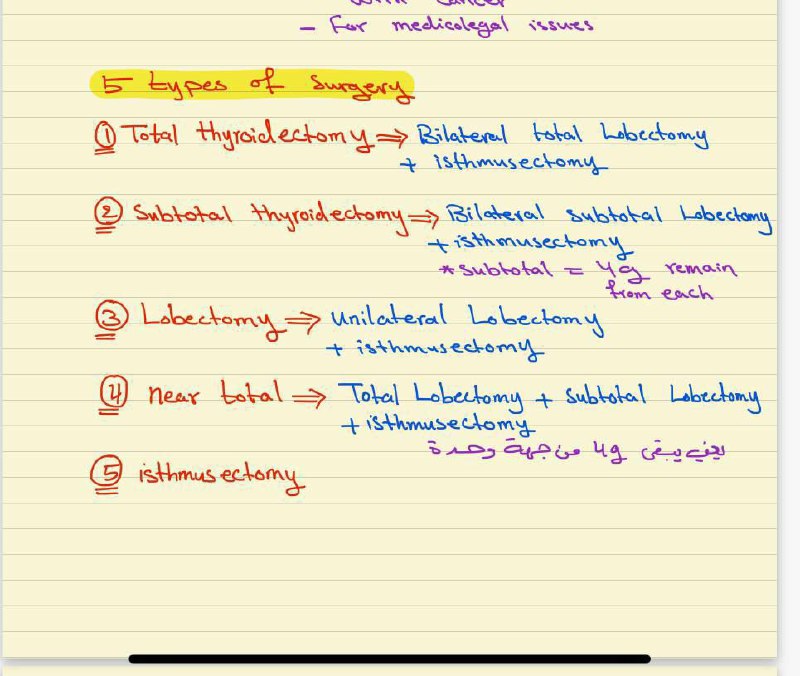 with cancer
- For medicolegal issues
5 types of surgery
① Total thyroidectomy ⇒ Bilateral total Lobectomy
+ isthmusectomy
② Subtotal thyroidectomy ⇒ Bilateral subtotal Lobectomy
+ isthmusectomy
* subtotal = 4g remain
from each
③ Lobectomy ⇒ unilateral Lobectomy
+ isthmusectomy
④ near total ⇒ Total Lobectomy + subtotal Lobectomy
+ isthmusectomy
يعني يبقى 4g من جهة وحدة
⑤ isthmusectomy